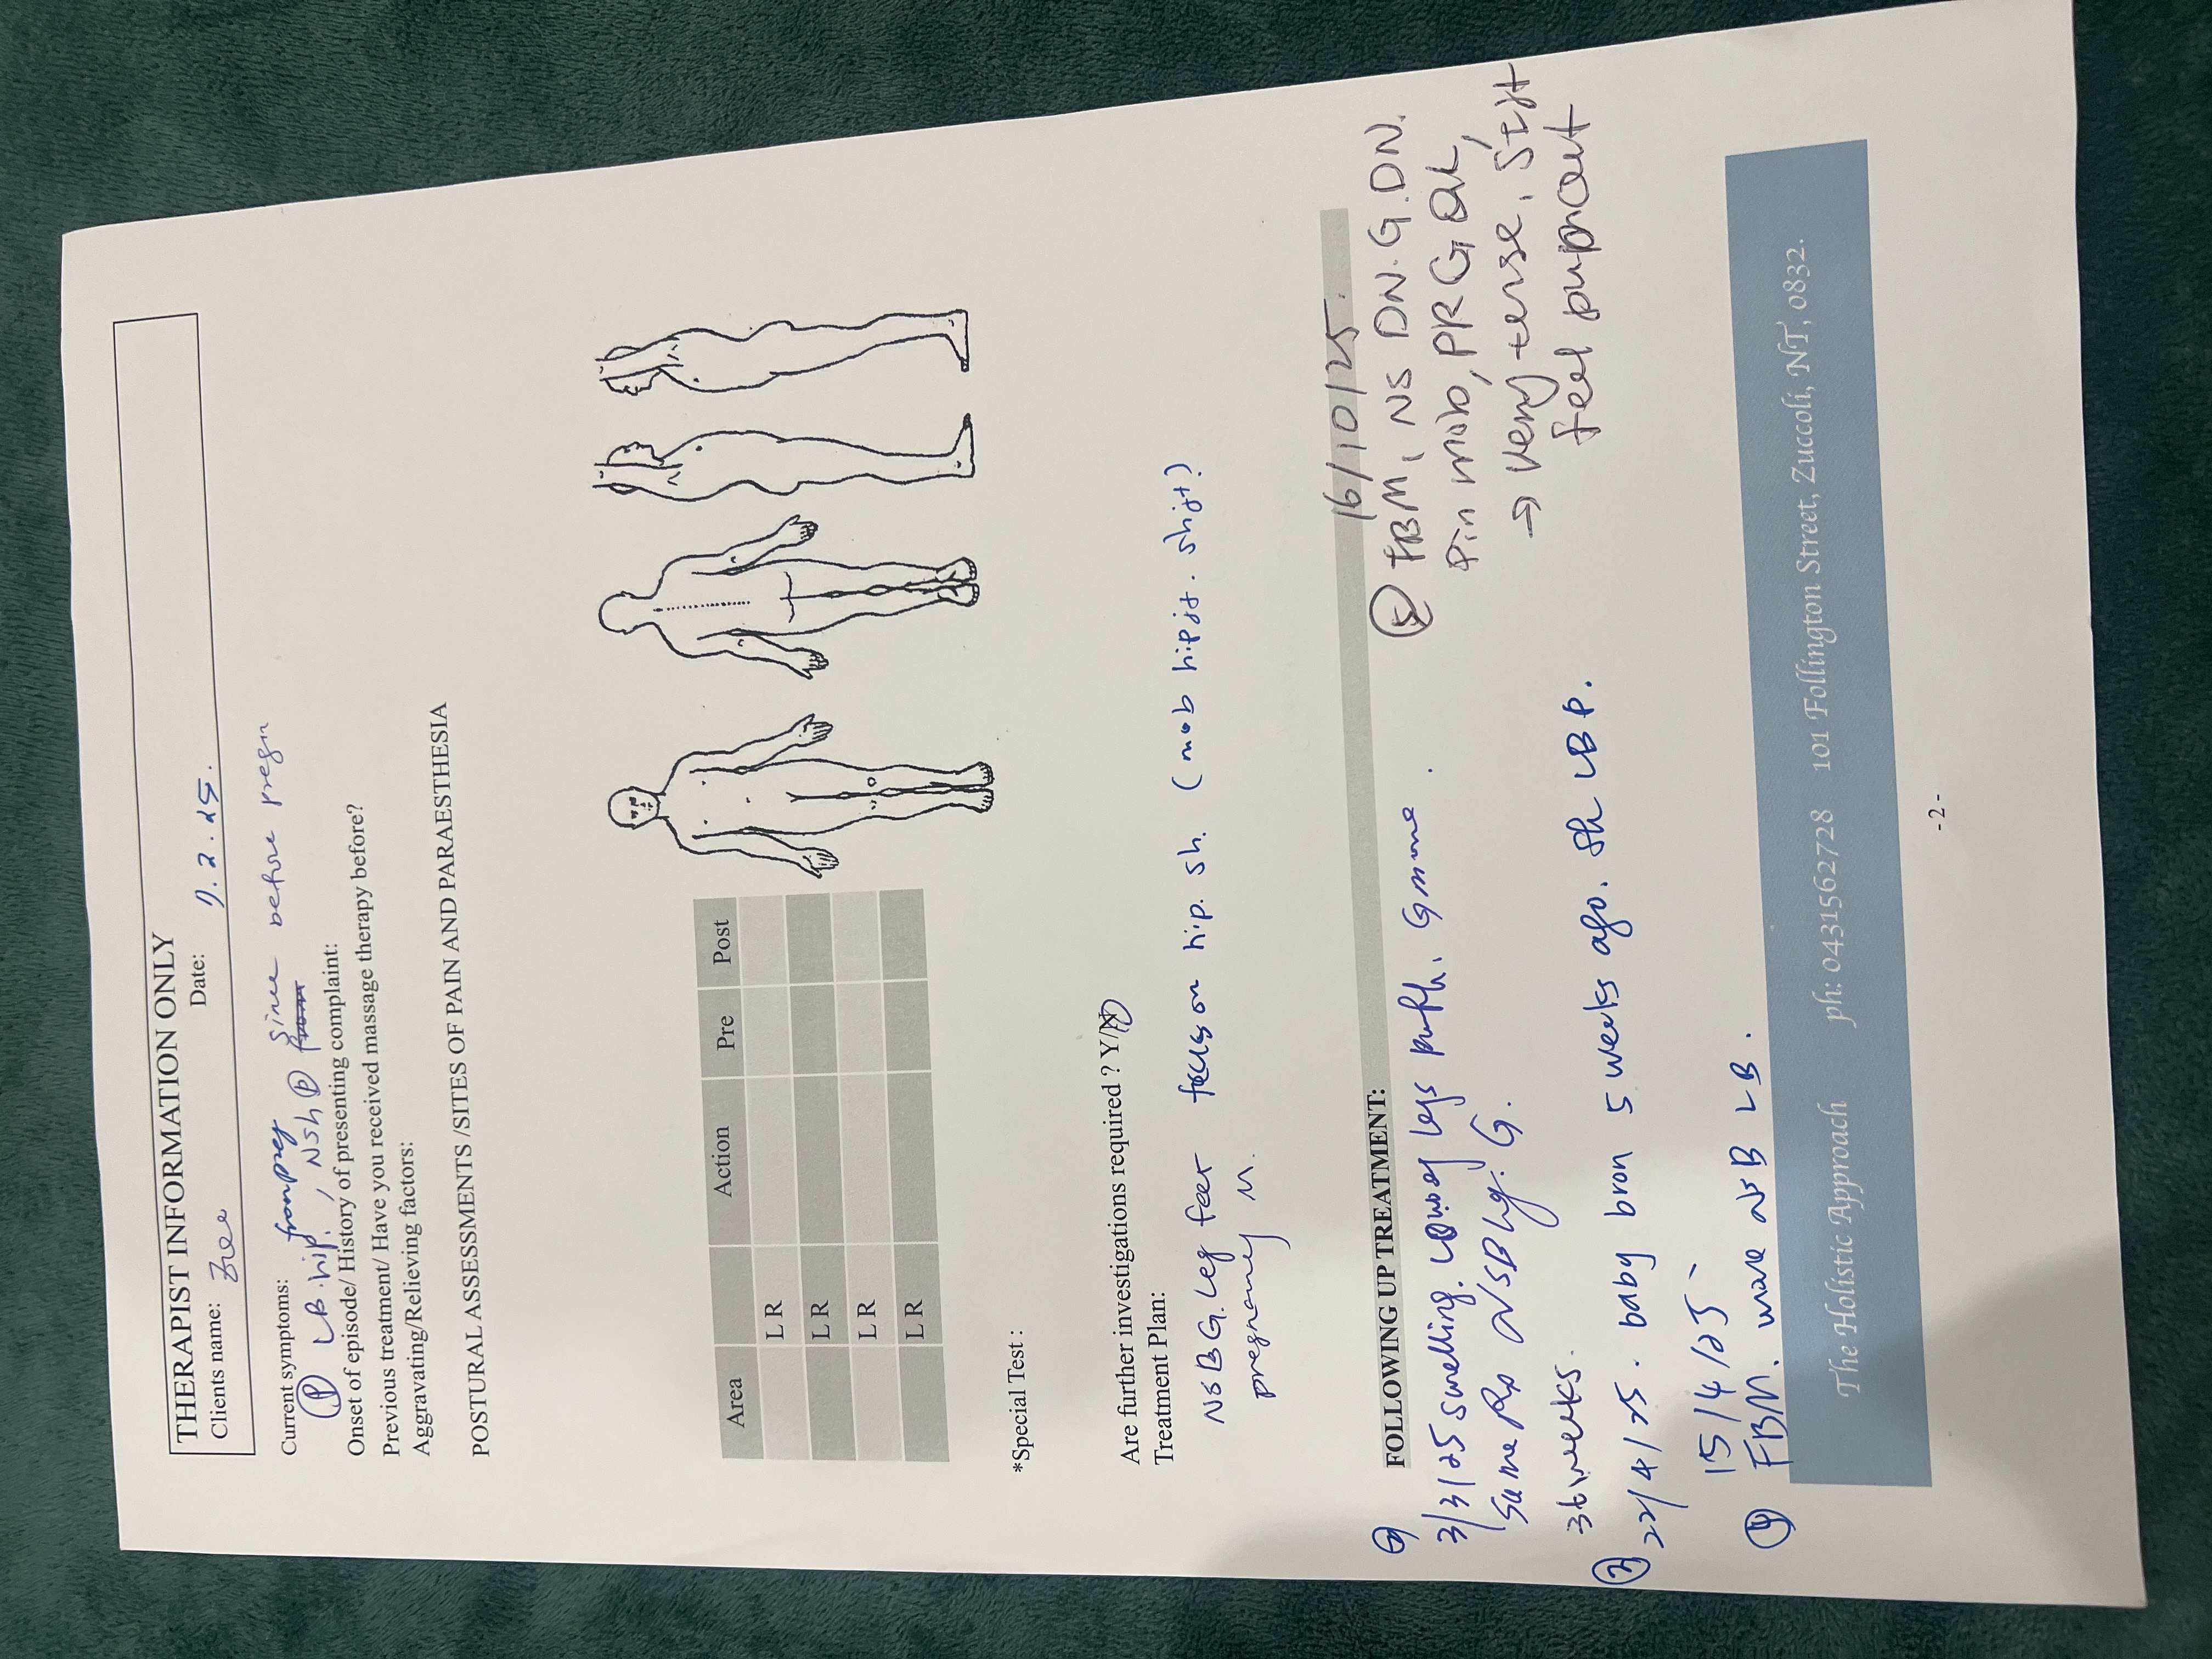 THERAPIST INFORMATION ONLY
Clients name: Zoe Date: 7.2.25.
Current symptoms: from preg since before pregn
Ⓟ LB. hip, NSh Ⓑ
Onset of episode/ History of presenting complaint:
Previous treatment/ Have you received massage therapy before?
Aggravating/Relieving factors:
POSTURAL ASSESSMENTS /SITES OF PAIN AND PARAESTHESIA
Area Action Pre Post
L R
L R
L R
L R
*Special Test :
Are further investigations required ? Y/N
Treatment Plan:
NSBG. Leg feet focus on hip. sh. (mob hip jt. sh jt)
pregnancy M.
FOLLOWING UP TREATMENT:
3/3/25 swelling. lower legs puffh. G mme
Same Rx NSB Lg. G.
36 weeks.
③ 22/4/25. baby bron 5 weeks ago. Sh LBP.
15/4/25
④ FBM. more NSB LB.
16/10/25.
⑤ FBM, NS DN. G. DN.
Pin mob, PR G QL,
→ very tense, still
feel
The Holistic Approach ph: 0431562728 101 Follington Street, Zuccoli, NT, 0832.
- 2 -